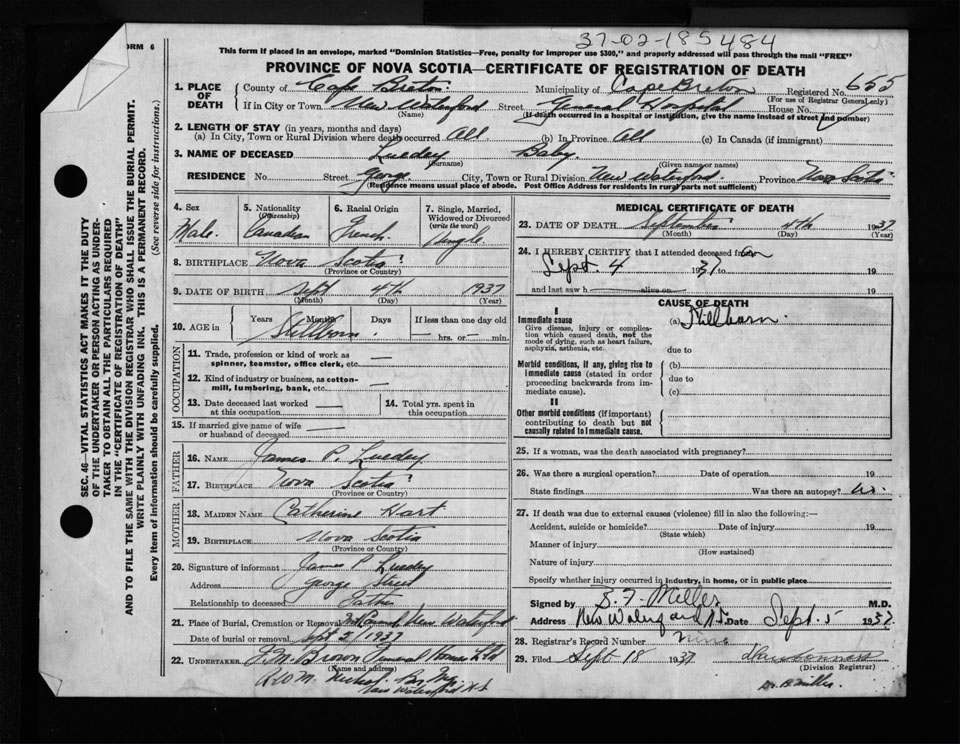 37-02-185484
ORM 6
This form if placed in an envelope, marked "Dominion Statistics—Free, penalty for improper use $300," and properly addressed will pass through the mail "FREE"
PROVINCE OF NOVA SCOTIA—CERTIFICATE OF REGISTRATION OF DEATH
1. PLACE OF DEATH County of Cape Breton Municipality of Cape Breton Registered No. 655
(For use of Registrar General only)
If in City or Town New Waterford Street General Hospital House No.
(Name) (If death occurred in a hospital or institution, give the name instead of street and number)
2. LENGTH OF STAY (in years, months and days)
(a) In City, Town or Rural Division where death occurred All (b) In Province All (c) In Canada (if immigrant)
3. NAME OF DECEASED Luedey Baby
(Surname) (Given name or names)
RESIDENCE No. Street George City, Town or Rural Division New Waterford Province Nova Scotia
(Residence means usual place of abode. Post Office Address for residents in rural parts not sufficient)
4. Sex Male
5. Nationality (Citizenship) Canadian
6. Racial Origin French
7. Single, Married, Widowed or Divorced (write the word) Single
8. BIRTHPLACE Nova Scotia
(Province or Country)
9. DATE OF BIRTH Sept 4th 1937
(Month) (Day) (Year)
10. AGE in Years Months Days If less than one day old
Stillborn hrs. or min.
OCCUPATION
11. Trade, profession or kind of work as spinner, teamster, office clerk, etc. —
12. Kind of industry or business, as cotton-mill, lumbering, bank, etc. —
13. Date deceased last worked at this occupation —
14. Total yrs. spent in this occupation
15. If married give name of wife or husband of deceased —
FATHER
16. NAME James P. Luedey
17. BIRTHPLACE Nova Scotia
(Province or Country)
MOTHER
18. MAIDEN NAME Catherine Hart
19. BIRTHPLACE Nova Scotia
(Province or Country)
20. Signature of informant James P Luedey
Address George Street
Relationship to deceased Father
21. Place of Burial, Cremation or Removal New Waterford
Date of burial or removal Sept 5/1937
22. UNDERTAKER J. M. Brown Funeral Home Ltd
(Name and address)
New Waterford N.S
MEDICAL CERTIFICATE OF DEATH
23. DATE OF DEATH September 4th 1937
(Month) (Day) (Year)
24. I HEREBY CERTIFY that I attended deceased from on
Sept. 4 1937 to 19
and last saw h alive on 19
CAUSE OF DEATH
I
Immediate cause (a) Stillborn.
Give disease, injury or complication which caused death, not the mode of dying, such as heart failure, asphyxia, asthenia, etc.
due to
Morbid conditions, if any, giving rise to immediate cause (stated in order proceeding backwards from immediate cause).
(b)
due to
(c)
II
Other morbid conditions (if important) contributing to death but not causally related to immediate cause.
25. If a woman, was the death associated with pregnancy?
26. Was there a surgical operation? Date of operation 19
State findings Was there an autopsy? No.
27. If death was due to external causes (violence) fill in also the following:—
Accident, suicide or homicide? Date of injury 19
(State which)
Manner of injury
(How sustained)
Nature of injury
Specify whether injury occurred in industry, in home, or in public place
Signed by B. F. Miller M.D.
Address New Waterford NS. Date Sept. 5 1937
28. Registrar's Record Number Nine
29. Filed Sept 18 1937
(Division Registrar)
Dr. B Miller.
SEC. 46—VITAL STATISTICS ACT MAKES IT THE DUTY
OF THE UNDERTAKER OR PERSON ACTING AS UNDER-
TAKER TO OBTAIN ALL THE PARTICULARS REQUIRED
IN THE "CERTIFICATE OF REGISTRATION OF DEATH"
AND TO FILE THE SAME WITH THE DIVISION REGISTRAR WHO SHALL ISSUE THE BURIAL PERMIT.
WRITE PLAINLY WITH UNFADING INK. THIS IS A PERMANENT RECORD.
Every item of information should be carefully supplied. (See reverse side for instructions.)